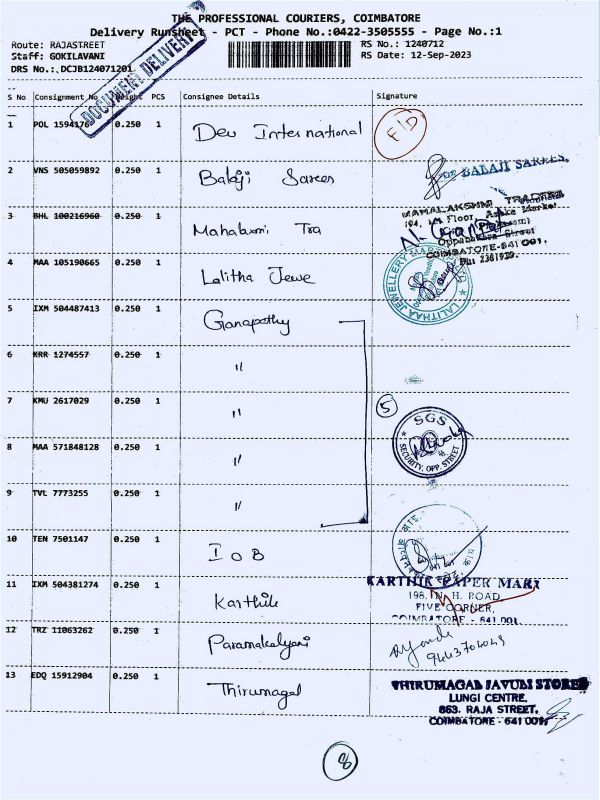 THE PROFESSIONAL COURIERS, COIMBATORE
Delivery Runsheet - PCT - Phone No.:0422-3505555 - Page No.:1
Route: RAJASTREET
Staff: GOKILAVANI
DRS No.:.DCJB124071201
RS No.: 1240712
RS Date: 12-Sep-2023
DOCUMENT DELIVERY
S No Consignment No Weight PCS Consignee Details Signature
1 POL 1594176 0.250 1 Dev International F/D
2 VNS 505059892 0.250 1 Balaji Sarees
FOR BALAJI SAREES,
3 BHL 100216960 0.250 1 Mahalaxmi Tra
MAHALAKSHMI TRADERS
194, 1st Floor,
Oppanakkara Street
COIMBATORE-641 001,
4 MAA 105190665 0.250 1 Lalitha Jewe
LALITHAA JEWELLERY MART
5 IXM 504487413 0.250 1 Ganapathy
6 KRR 1274557 0.250 1 "
7 KMU 2617029 0.250 1 "
5
8 MAA 571848128 0.250 1 "
SGS
SECURITY, OPP. STREET
9 TVL 7773255 0.250 1 "
10 TEN 7501147 0.250 1 I O B
11 IXM 504381274 0.250 1 Karthik
KARTHIK PAPER MART
198, N. H. ROAD,
FIVE CORNER,
COIMBATORE - 641 001.
12 TRZ 11063262 0.250 1 Paramakalyani
13 EDQ 15912904 0.250 1 Thirumagal
THIRUMAGAL JAVULI STORES
LUNGI CENTRE,
863. RAJA STREET,
COIMBATORE - 641 001.
8